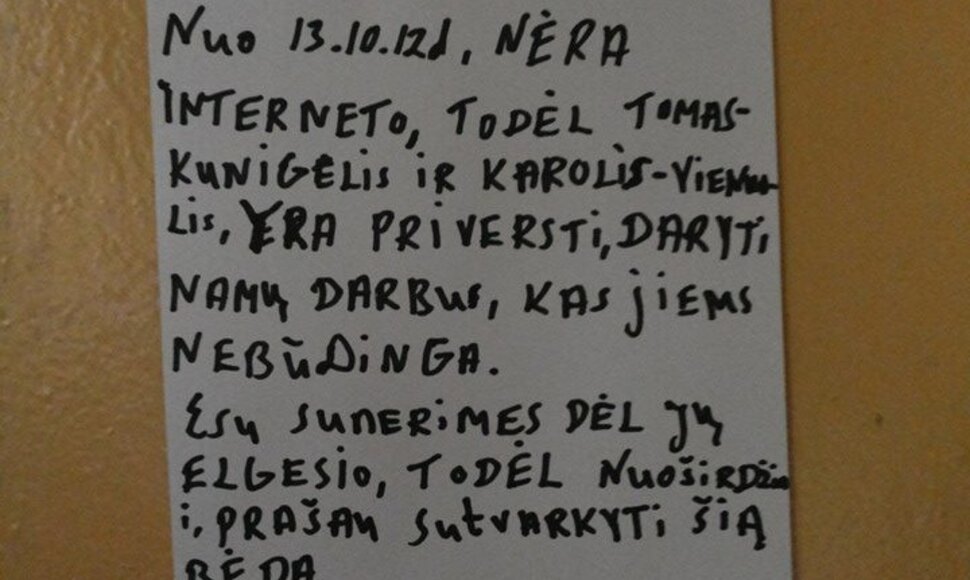 Nuo 13.10.12d, NĖRA
INTERNETO, TODĖL TOMAS-
KUNIGĖLIS iR KAROLiS-ViENUO-
Lis, YRA PRiVERSTi, DARYTi
NAMŲ DARBUS, KAS jiEMS
NEBŪDiNGA.
ESŲ SUNERiMES DĖL JŲ
ELGESiO, TODĖL NUOŠiRDŽiA
i, PRAŠAU SUTVARKYTi ŠiĄ
BĖDĄ